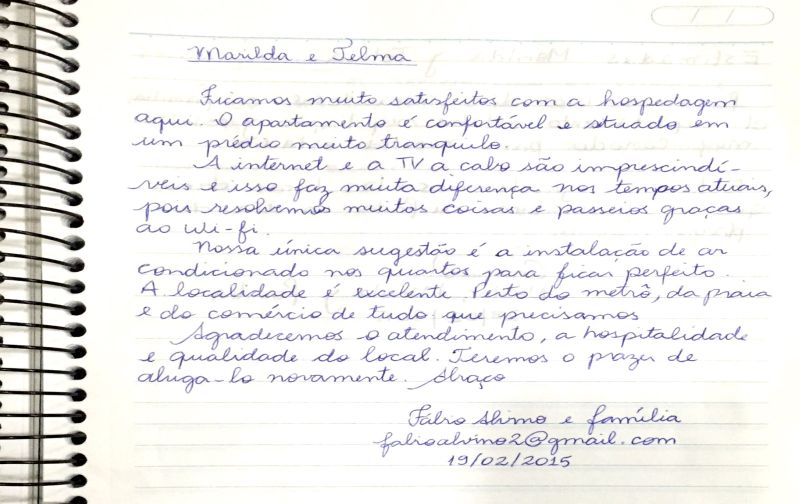 Marilda e Telma
Ficamos muito satisfeitos com a hospedagem
aqui. O apartamento é confortável e situado em
um prédio muito tranquilo.
A internet e a TV a cabo são imprescindí-
veis e isso faz muita diferença nos tempos atuais,
pois resolvemos muitas coisas e passeios graças
ao wi-fi.
Nossa única sugestão é a instalação de ar
condicionado nos quartos para ficar perfeito.
A localidade é excelente. Perto do metrô, da praia
e do comércio de tudo que precisamos
Agradecemos o atendimento, a hospitalidade
e qualidade do local. Teremos o prazer de
aluga-lo novamente. Abraço
Fabio e família
19/02/2015